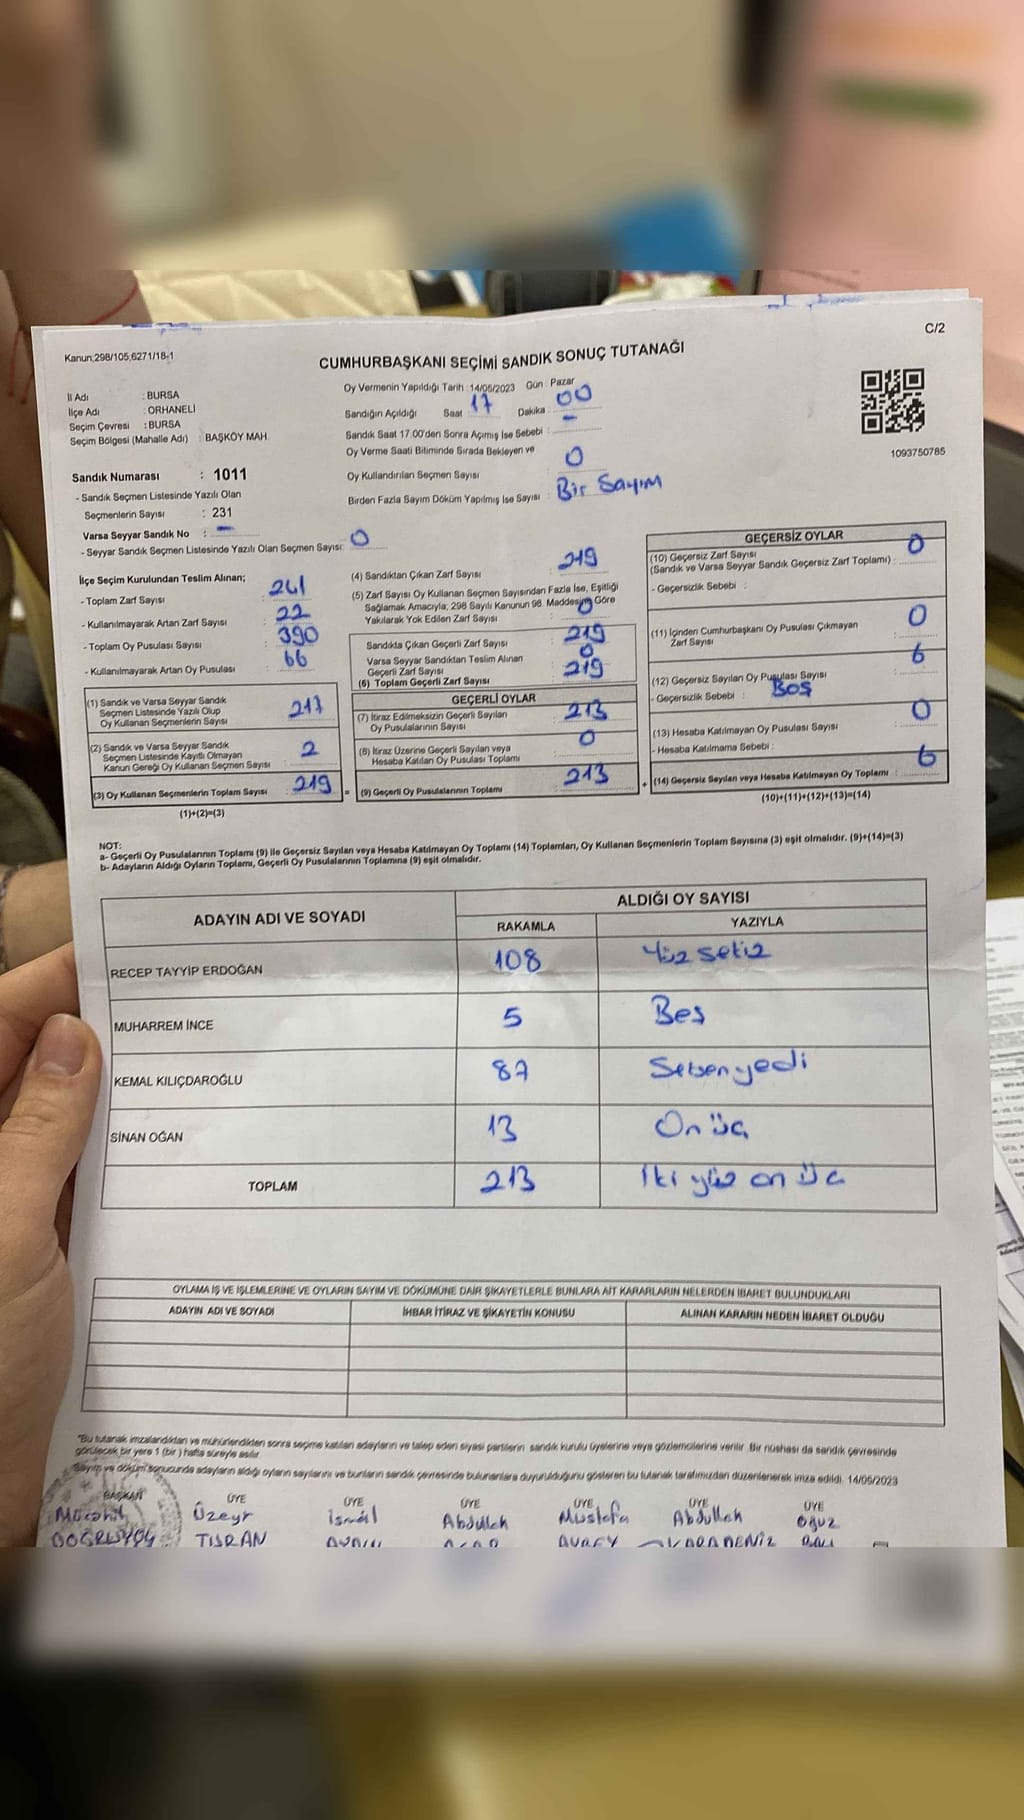 C/2
Kanun;298/105,6271/18-1
CUMHURBAŞKANI SEÇİMİ SANDIK SONUÇ TUTANAĞI
İl Adı : BURSA
İlçe Adı : ORHANELİ
Seçim Çevresi : BURSA
Seçim Bölgesi (Mahalle Adı) : BAŞKÖY MAH.
Oy Vermenin Yapıldığı Tarih : 14/05/2023 Gün : Pazar
Sandığın Açıldığı Saat 17 Dakika : 00
Sandık Saat 17.00'den Sonra Açımış İse Sebebi : -
Oy Verme Saati Bitiminde Sırada Bekleyen ve
Oy Kullandırılan Seçmen Sayısı 0
Birden Fazla Sayım Döküm Yapılmış İse Sayısı : Bir Sayım
1093750785
Sandık Numarası : 1011
- Sandık Seçmen Listesinde Yazılı Olan
Seçmenlerin Sayısı : 231
Varsa Seyyar Sandık No : -
- Seyyar Sandık Seçmen Listesinde Yazılı Olan Seçmen Sayısı: 0
İlçe Seçim Kurulundan Teslim Alınan;
- Toplam Zarf Sayısı : 241
- Kullanılmayarak Artan Zarf Sayısı : 22
- Toplam Oy Pusulası Sayısı : 390
- Kullanılmayarak Artan Oy Pusulası : 66
(1) Sandık ve Varsa Seyyar Sandık
Seçmen Listesinde Yazılı Olup
Oy Kullanan Seçmenlerin Sayısı : 217
(2) Sandık ve Varsa Seyyar Sandık
Seçmen Listesinde Kayıtlı Olmayan
Kanun Gereği Oy Kullanan Seçmen Sayısı : 2
(3) Oy Kullanan Seçmenlerin Toplam Sayısı : 219 =
(1)+(2)=(3)
(4) Sandıktan Çıkan Zarf Sayısı : 219
(5) Zarf Sayısı Oy Kullanan Seçmen Sayısından Fazla İse, Eşitliği
Sağlamak Amacıyla; 298 Sayılı Kanunun 98. Maddesine Göre
Yakılarak Yok Edilen Zarf Sayısı : 0
Sandıkta Çıkan Geçerli Zarf Sayısı : 219
Varsa Seyyar Sandıktan Teslim Alınan
Geçerli Zarf Sayısı : 0
(6) Toplam Geçerli Zarf Sayısı : 219
GEÇERLİ OYLAR
(7) İtiraz Edilmeksizin Geçerli Sayılan
Oy Pusulalarının Sayısı : 213
(8) İtiraz Üzerine Geçerli Sayılan veya
Hesaba Katılan Oy Pusulası Toplamı : 0
(9) Geçerli Oy Pusulalarının Toplamı : 213 +
GEÇERSİZ OYLAR
(10) Geçersiz Zarf Sayısı
(Sandık ve Varsa Seyyar Sandık Geçersiz Zarf Toplamı) : 0
- Geçersizlik Sebebi :
(11) İçinden Cumhurbaşkanı Oy Pusulası Çıkmayan
Zarf Sayısı : 0
(12) Geçersiz Sayılan Oy Pusulası Sayısı : 6
- Geçersizlik Sebebi : Boş
(13) Hesaba Katılmayan Oy Pusulası Sayısı : 0
- Hesaba Katılmama Sebebi :
(14) Geçersiz Sayılan veya Hesaba Katılmayan Oy Toplamı : 6
(10)+(11)+(12)+(13)=(14)
NOT:
a- Geçerli Oy Pusulalarının Toplamı (9) ile Geçersiz Sayılan veya Hesaba Katılmayan Oy Toplamı (14) Toplamları, Oy Kullanan Seçmenlerin Toplam Sayısına (3) eşit olmalıdır. (9)+(14)=(3)
b- Adayların Aldığı Oyların Toplamı, Geçerli Oy Pusulalarının Toplamına (9) eşit olmalıdır.
ADAYIN ADI VE SOYADI ALDIĞI OY SAYISI
RAKAMLA YAZIYLA
RECEP TAYYİP ERDOĞAN 108 Yüz sekiz
MUHARREM İNCE 5 Beş
KEMAL KILIÇDAROĞLU 87 Seksen yedi
SİNAN OĞAN 13 On üç
TOPLAM 213 İki yüz on üç
OYLAMA İŞ VE İŞLEMLERİNE VE OYLARIN SAYIM VE DÖKÜMÜNE DAİR ŞİKAYETLERLE BUNLARA AİT KARARLARIN NELERDEN İBARET BULUNDUKLARI
ADAYIN ADI VE SOYADI İHBAR İTİRAZ VE ŞİKAYETİN KONUSU ALINAN KARARIN NEDEN İBARET OLDUĞU
"Bu tutanak imzalandıktan ve mühürlendikten sonra seçime katılan adayların ve talep eden siyasi partilerin sandık kurulu üyelerine veya gözlemcilerine verilir. Bir nüshası da sandık çevresinde
görülecek bir yere 1 (bir) hafta süreyle asılır.
Sayım ve döküm sonucunda adayların aldığı oyların sayılarını ve bunların sandık çevresinde bulunanlara duyurulduğunu gösteren bu tutanak tarafımızdan düzenlenerek imza edildi. 14/05/2023
BAŞKAN ÜYE ÜYE ÜYE ÜYE ÜYE ÜYE
Mücahit Üzeyr İsmail Abdullah Mustafa Abdullah Oğuz
TURAN KARADENİZ